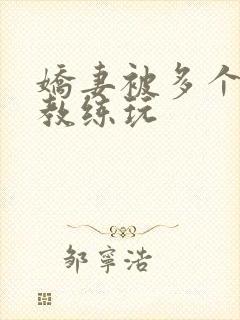 嬌妻被多个
教练玩
邹寧浩